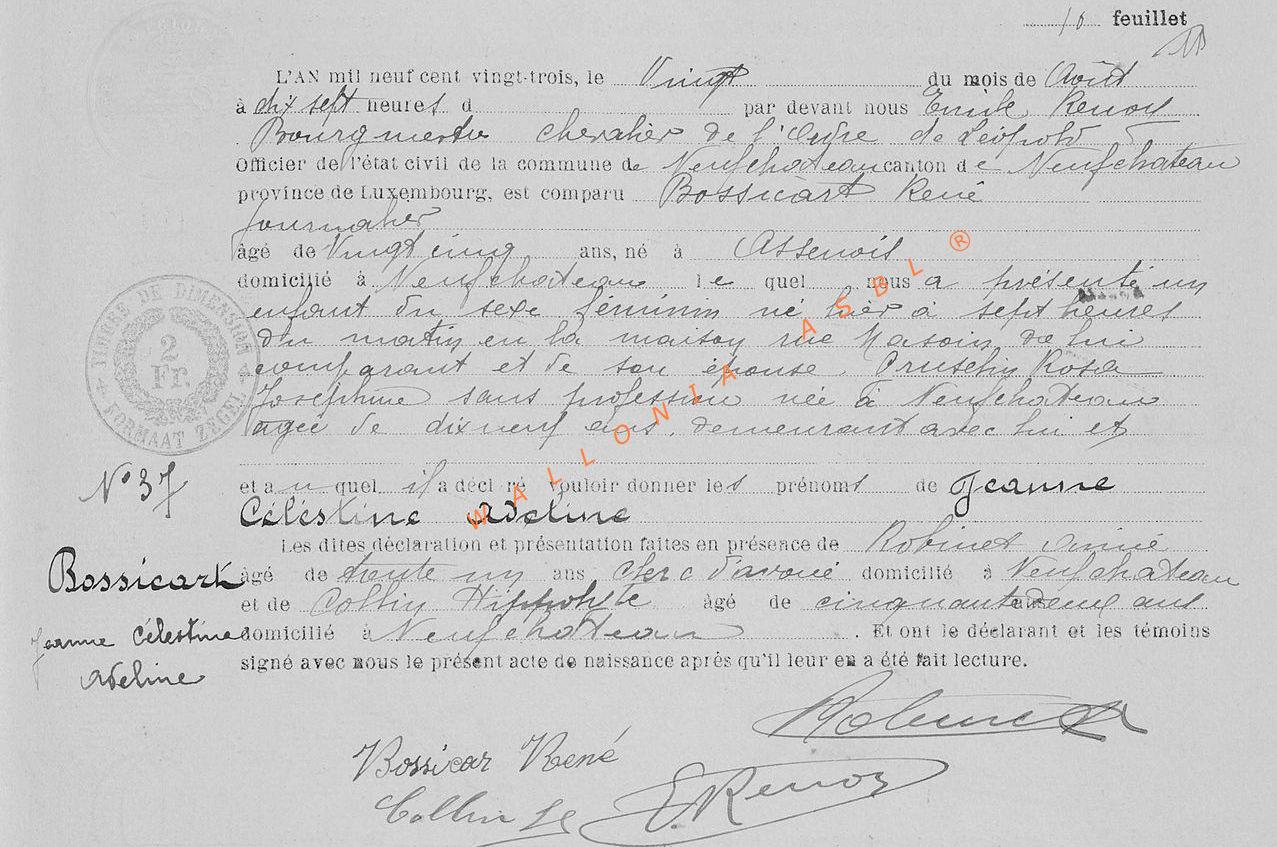 10 feuillet
L'AN mil neuf cent vingt-trois, le Vingt du mois de Août
à dix sept heures d par devant nous Emile Renoy
Bourgmestre Chevalier de l'Ordre de Léopold
Officier de l'état civil de la commune de Neufchateau canton de Neufchateau
province de Luxembourg, est comparu Bossicart René
Journalier
âgé de Vingt cinq ans, né à Assenois
domicilié à Neufchateau le quel nous a présenté un
enfant du sexe féminin né hier à sept heures
du matin en la maison rue Masoin de lui
comparant et de son épouse Rosa
Joséphine sans profession née à Neufchateau
agée de dix neuf ans, demeurant avec lui et
et au quel il a déclaré vouloir donner les prénoms de Jeanne
Célestine Adeline
Les dites déclaration et présentation faites en présence de Robinet
âgé de trente un ans clerc d'avoué domicilié à Neufchateau
et de Collin Hippolyte âgé de cinquante deux ans
domicilié à Neufchateau. Et ont le déclarant et les témoins
signé avec nous le présent acte de naissance après qu'il leur en a été fait lecture.
TIMBRE DE DIMENSION
2
Fr.
FORMAAT ZEGEL
N° 37
Bossicart
Jeanne Célestine
Adeline
WALLONIA ASBL ®
Robinet
Bossicar René
Collin
E. Renoy